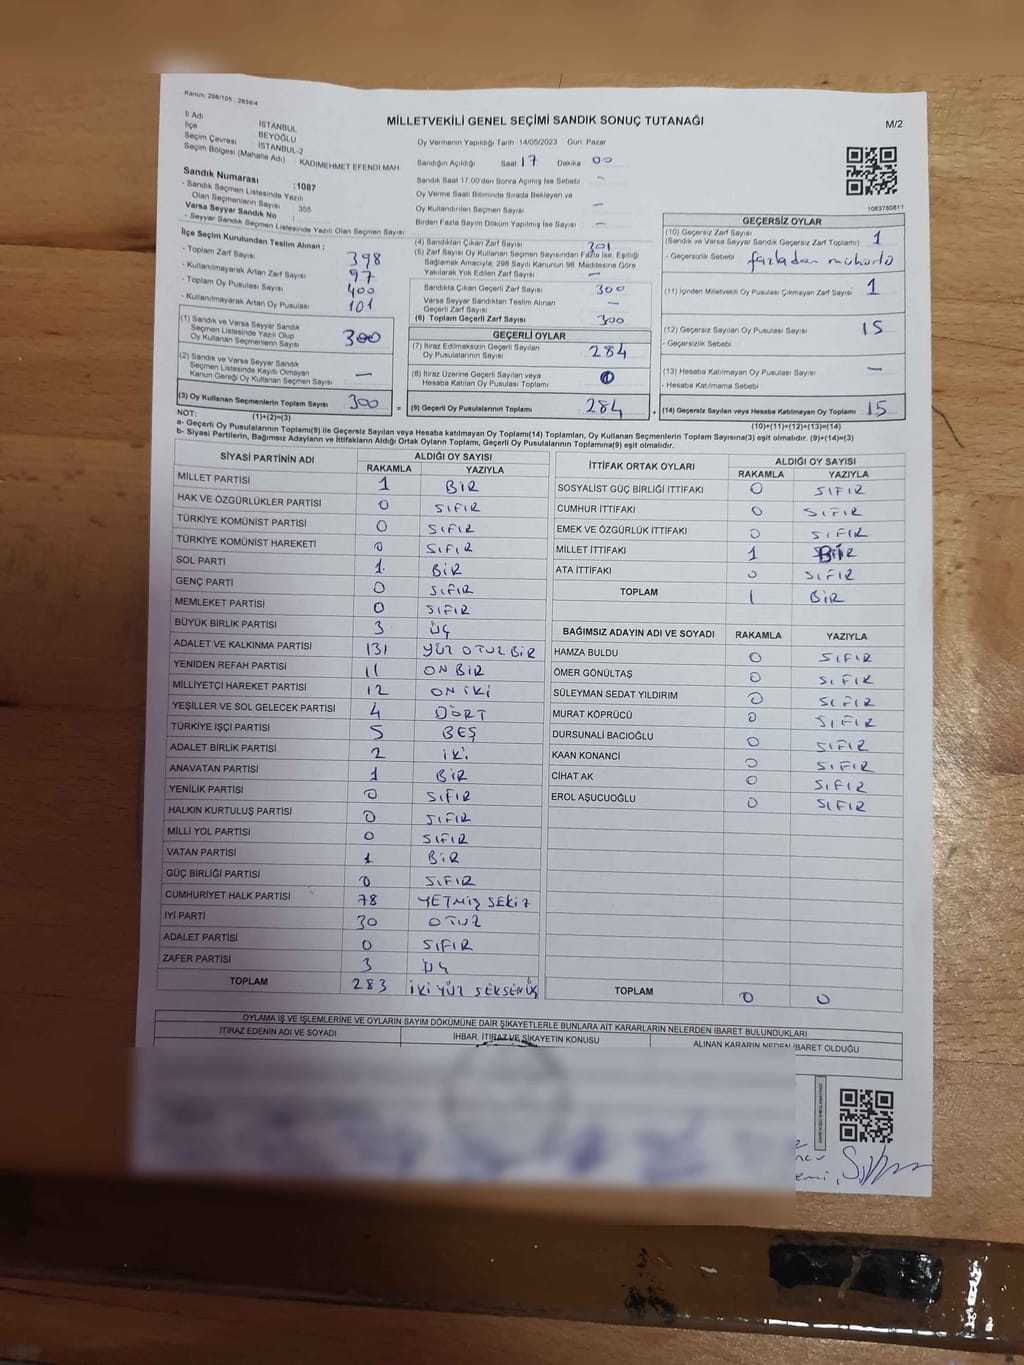 Kanun; 298/105 ; 2839/4
MİLLETVEKİLİ GENEL SEÇİMİ SANDIK SONUÇ TUTANAĞI
M/2
İl Adı İSTANBUL
İlçe BEYOĞLU
Seçim Çevresi İSTANBUL-2
Seçim Bölgesi (Mahalle Adı) : KADIMEHMET EFENDİ MAH.
Sandık Numarası :1087
- Sandık Seçmen Listesinde Yazılı
Olan Seçmenlerin Sayısı 355
Varsa Seyyar Sandık No
- Seyyar Sandık Seçmen Listesinde Yazılı Olan Seçmen Sayısı
Oy Vermenin Yapıldığı Tarih :14/05/2023 Gün: Pazar
Sandığın Açıldığı Saat 17 Dakika 00
Sandık Saat 17:00'den Sonra Açılmış İse Sebebi –
Oy Verme Saati Bitiminde Sırada Bekleyen ve
Oy Kullandırılan Seçmen Sayısı –
Birden Fazla Sayım Döküm Yapılmış İse Sayısı –
1083780811
İlçe Seçim Kurulundan Teslim Alınan ;
- Toplam Zarf Sayısı 398
- Kullanılmayarak Artan Zarf Sayısı 97
- Toplam Oy Pusulası Sayısı 400
- Kullanılmayarak Artan Oy Pusulası 101
(1) Sandık ve Varsa Seyyar Sandık
Seçmen Listesinde Yazılı Olup
Oy Kullanan Seçmenlerin Sayısı 300
(2) Sandık ve Varsa Seyyar Sandık
Seçmen Listesinde Kayıtlı Olmayan
Kanun Gereği Oy Kullanan Seçmen Sayısı –
(3) Oy Kullanan Seçmenlerin Toplam Sayısı 300 =
(1)+(2)=(3)
(4) Sandıktan Çıkan Zarf Sayısı 301
(5) Zarf Sayısı Oy Kullanan Seçmen Sayısından Fazla İse, Eşitliği
Sağlamak Amacıyla, 298 Sayılı Kanunun 98. Maddesine Göre
Yakılarak Yok Edilen Zarf Sayısı –
Sandıkta Çıkan Geçerli Zarf Sayısı 300
Varsa Seyyar Sandıktan Teslim Alınan
Geçerli Zarf Sayısı –
(6) Toplam Geçerli Zarf Sayısı 300
GEÇERLİ OYLAR
(7) İtiraz Edilmeksizin Geçerli Sayılan
Oy Pusulalarının Sayısı 284
(8) İtiraz Üzerine Geçerli Sayılan veya
Hesaba Katılan Oy Pusulası Toplamı
(9) Geçerli Oy Pusulalarının Toplamı 284 +
GEÇERSİZ OYLAR
(10) Geçersiz Zarf Sayısı
(Sandık ve Varsa Seyyar Sandık Geçersiz Zarf Toplamı) 1
- Geçersizlik Sebebi fazladan mühürlü
(11) İçinden Milletvekili Oy Pusulası Çıkmayan Zarf Sayısı 1
(12) Geçersiz Sayılan Oy Pusulası Sayısı 15
- Geçersizlik Sebebi
(13) Hesaba Katılmayan Oy Pusulası Sayısı –
- Hesaba Katılmama Sebebi
(14) Geçersiz Sayılan veya Hesaba Katılmayan Oy Toplamı 15
(10)+(11)+(12)+(13)=(14)
NOT:
a- Geçerli Oy Pusulalarının Toplamı(9) ile Geçersiz Sayılan veya Hesaba Katılmayan Oy Toplamı(14) Toplamları, Oy Kullanan Seçmenlerin Toplam Sayısına(3) eşit olmalıdır. (9)+(14)=(3)
b- Siyasi Partilerin, Bağımsız Adayların ve İttifakların Aldığı Ortak Oyların Toplam, Geçerli Oy Pusulalarının Toplamına(9) eşit olmalıdır.
SİYASİ PARTİNİN ADI ALDIĞI OY SAYISI
RAKAMLA YAZIYLA
MİLLET PARTİSİ 1 BİR
HAK VE ÖZGÜRLÜKLER PARTİSİ 0 SIFIR
TÜRKİYE KOMÜNİST PARTİSİ 0 SIFIR
TÜRKİYE KOMÜNİST HAREKETİ 0 SIFIR
SOL PARTİ 1 BİR
GENÇ PARTİ 0 SIFIR
MEMLEKET PARTİSİ 0 SIFIR
BÜYÜK BİRLİK PARTİSİ 3 ÜÇ
ADALET VE KALKINMA PARTİSİ 131 YÜZ OTUZ BİR
YENİDEN REFAH PARTİSİ 11 ON BİR
MİLLİYETÇİ HAREKET PARTİSİ 12 ON İKİ
YEŞİLLER VE SOL GELECEK PARTİSİ 4 DÖRT
TÜRKİYE İŞÇİ PARTİSİ 5 BEŞ
ADALET BİRLİK PARTİSİ 2 İKİ
ANAVATAN PARTİSİ 1 BİR
YENİLİK PARTİSİ 0 SIFIR
HALKIN KURTULUŞ PARTİSİ 0 SIFIR
MİLLİ YOL PARTİSİ 0 SIFIR
VATAN PARTİSİ 1 BİR
GÜÇ BİRLİĞİ PARTİSİ 0 SIFIR
CUMHURİYET HALK PARTİSİ 78 YETMİŞ SEKİZ
İYİ PARTİ 30 OTUZ
ADALET PARTİSİ 0 SIFIR
ZAFER PARTİSİ 3 ÜÇ
TOPLAM 283 İKİ YÜZ SEKSENÜÇ
İTTİFAK ORTAK OYLARI ALDIĞI OY SAYISI
RAKAMLA YAZIYLA
SOSYALİST GÜÇ BİRLİĞİ İTTİFAKI 0 SIFIR
CUMHUR İTTİFAKI 0 SIFIR
EMEK VE ÖZGÜRLÜK İTTİFAKI 0 SIFIR
MİLLET İTTİFAKI 1 BİR
ATA İTTİFAKI 0 SIFIR
TOPLAM 1 BİR
BAĞIMSIZ ADAYIN ADI VE SOYADI RAKAMLA YAZIYLA
HAMZA BULDU 0 SIFIR
ÖMER GÖNÜLTAŞ 0 SIFIR
SÜLEYMAN SEDAT YILDIRIM 0 SIFIR
MURAT KÖPRÜCÜ 0 SIFIR
DURSUNALİ BACIOĞLU 0 SIFIR
KAAN KONANCİ 0 SIFIR
CİHAT AK 0 SIFIR
EROL AŞUCUOĞLU 0 SIFIR
TOPLAM 0 0
OYLAMA İŞ VE İŞLEMLERİNE VE OYLARIN SAYIM DÖKÜMÜNE DAİR ŞİKAYETLERLE BUNLARA AİT KARARLARIN NELERDEN İBARET BULUNDUKLARI
İTİRAZ EDENİN ADI VE SOYADI İHBAR, İTİRAZ VE ŞİKAYETİN KONUSU ALINAN KARARIN NEDEN İBARET OLDUĞU